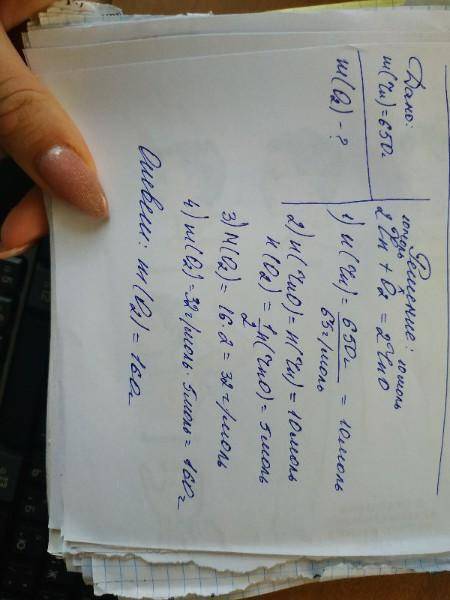 Дано:
m(Zn)=650г
m(O₂) - ?
Решение:
10моль x 10моль
2Zn + O₂ = 2ZnO
1) n(Zn) = 650г / 65г/моль = 10моль
2) n(ZnO) = n(Zn) = 10моль
n(O₂) = 1/2 n(ZnO) = 5моль
3) M(O₂) = 16·2 = 32г/моль
4) m(O₂) = 32г/моль · 5моль = 160г
Ответ: m(O₂) = 160г